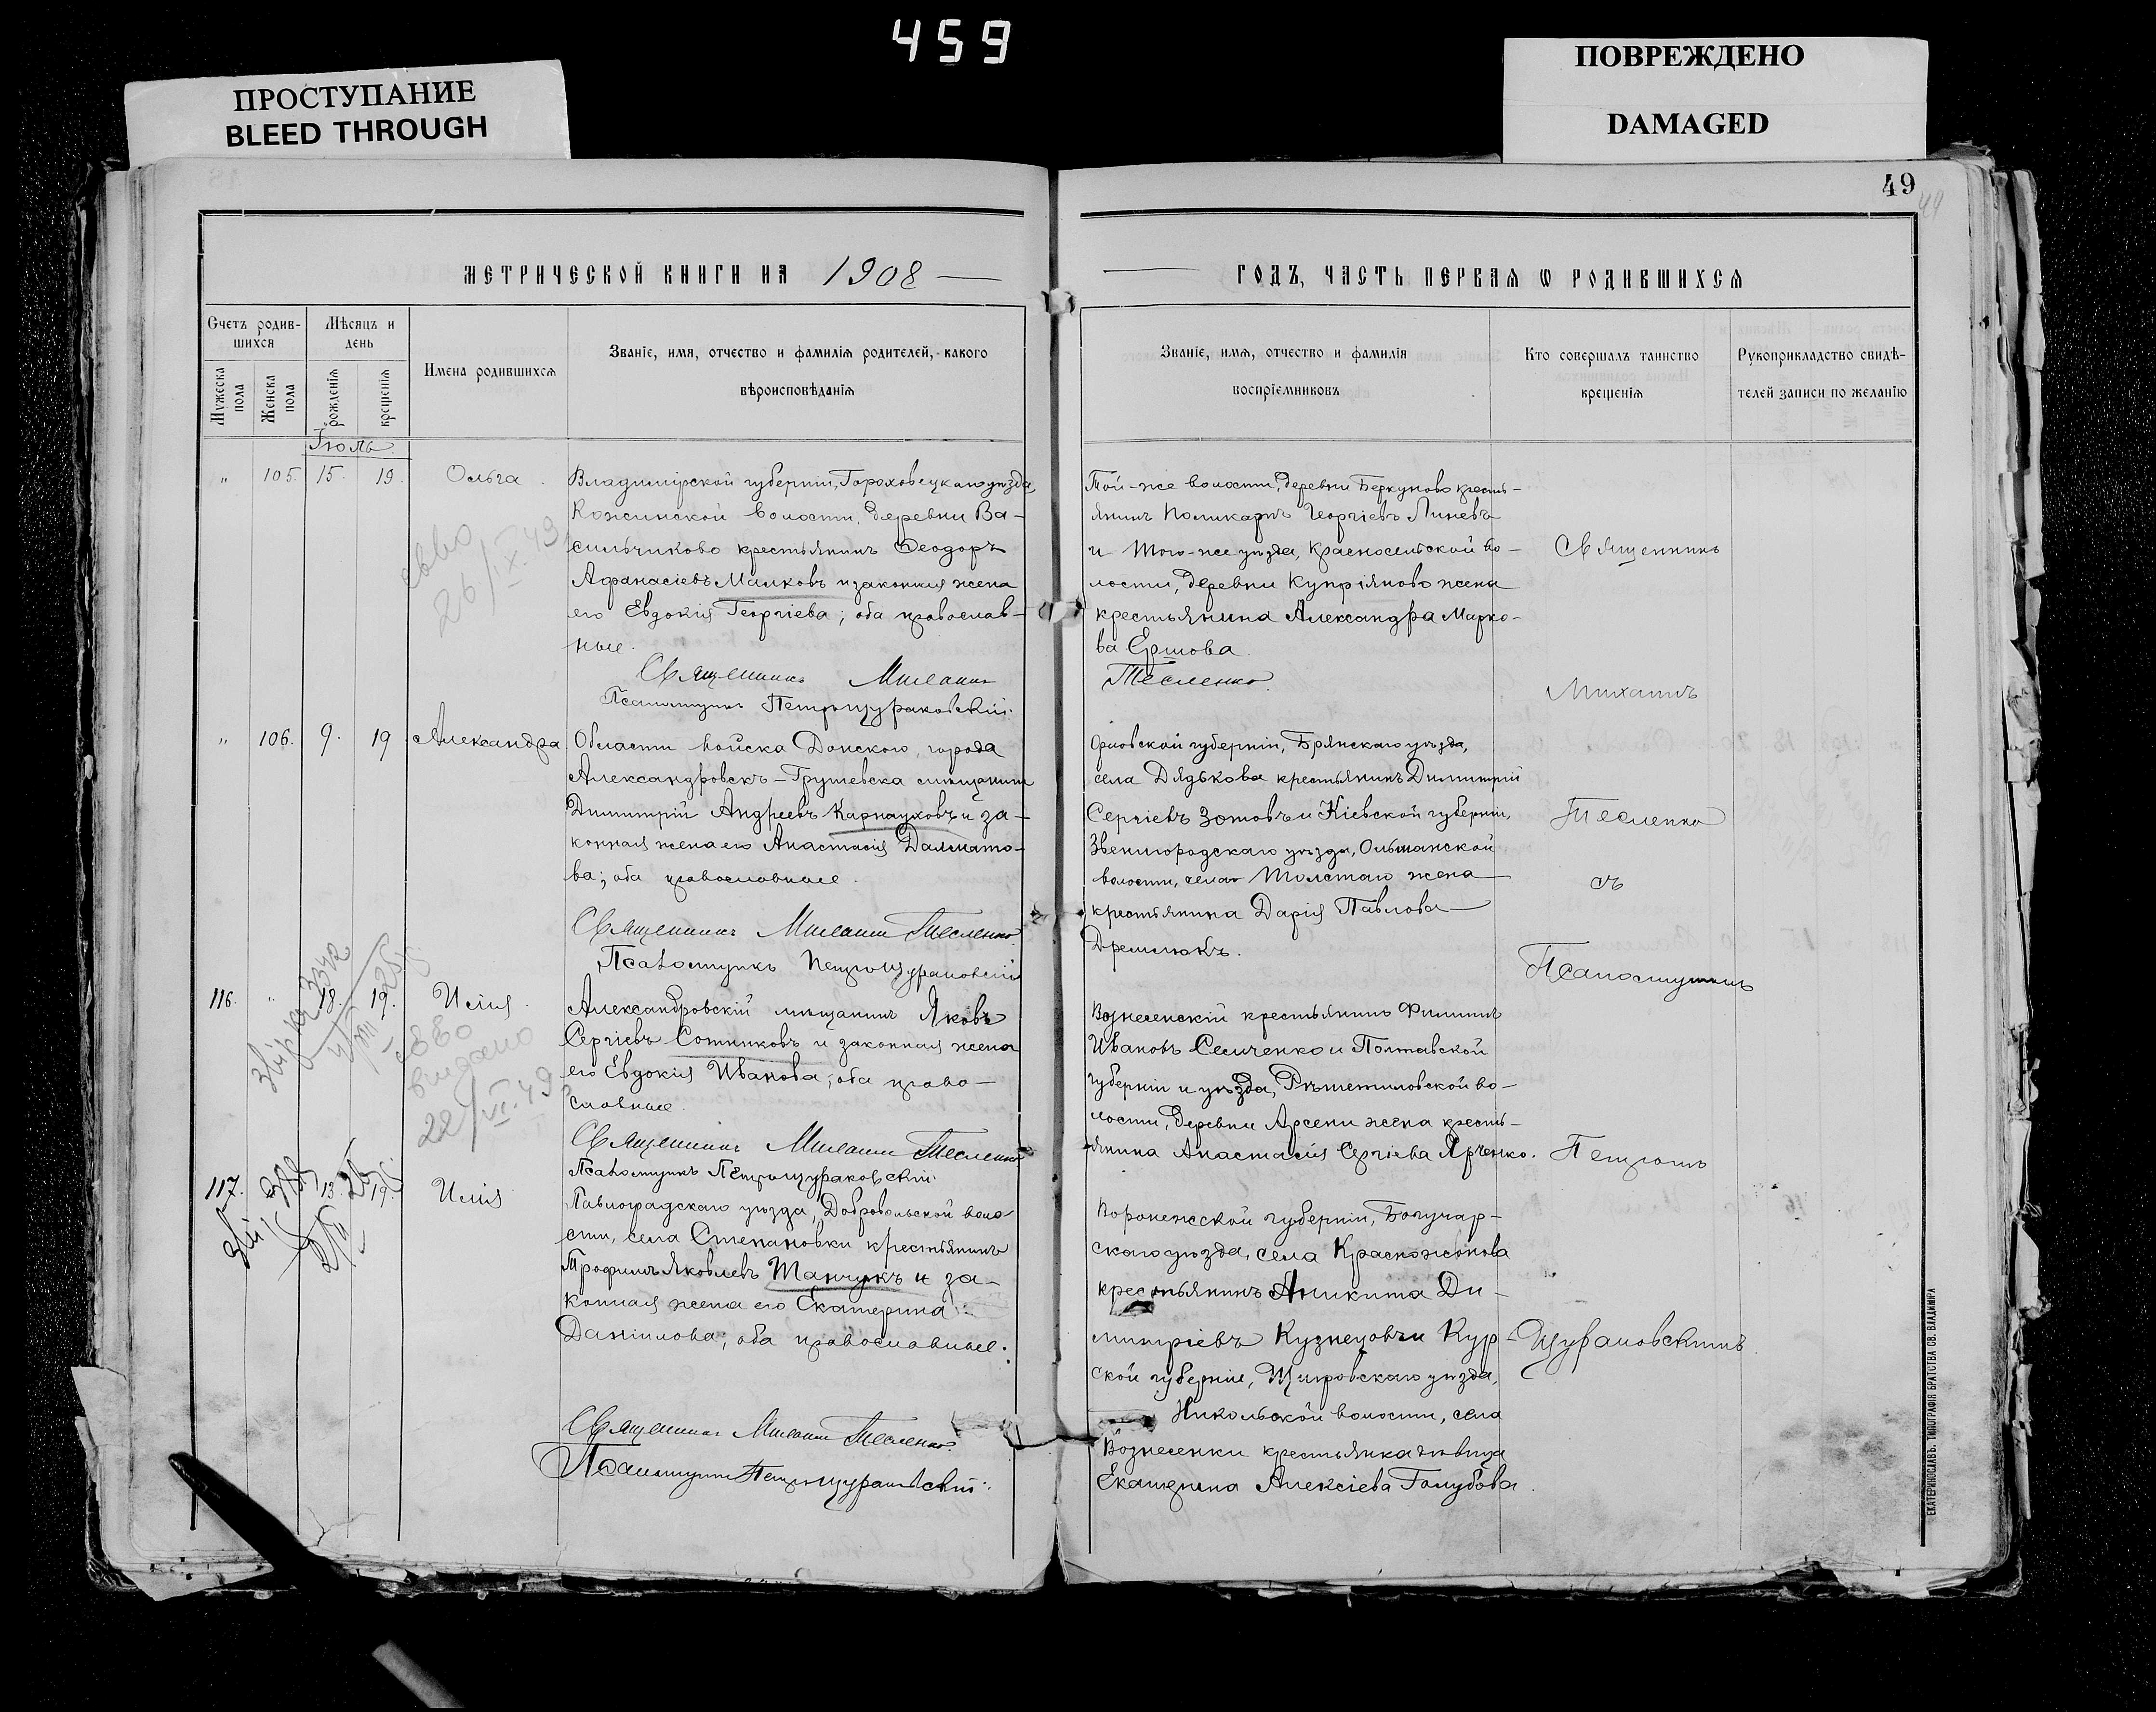 459
ПРОСТУПАНИЕ
BLEED THROUGH
ПОВРЕЖДЕНО
DAMAGED
49
49
МЕТРИЧЕСКОЙ КНИГИ НА 1908
Счетъ родив-
шихся
Мѣсяцъ и
день
Имена родившихся
Званіе, имя, отчество и фамилія родителей, какого
вѣроисповѣданія
Мужеска
пола
Женска
пола
рожденія
крещенія
Іюль.
" 105. 15. 19. Ольга.
Владимірской губерніи, Гороховецкаго уѣзда,
Кожинской волости, деревни Ва-
сильчиково крестьянинъ Ѳеодоръ
Афанасіевъ Малковъ и законная жена
его Евдокія Георгіева; оба православ-
ные.
Священникъ Михаилъ
Тесленко.
Псаломщикъ Петръ Щураковскій.
26/IX.49
" 106. 9. 19 Александра
Области Войска Донского, города
Александровскъ-Грушевска мѣщанинъ
Димитрій Андреевъ Карнауховъ и за-
конная жена его Анастасія Далмато-
ва; оба православные.
Священникъ Михаилъ Тесленко.
Псаломщикъ Петръ Щураковскій
116. " 18. 19. Илія.
Александровскій мѣщанинъ Яковъ
Сергіевъ Сотниковъ и законная жена
его Евдокія Иванова; оба право-
славные.
Священникъ Михаилъ Тесленко
Псаломщикъ Петръ Щураковскій.
выдано
22/VI.49
117. 13. 19. Илія
Павлоградскаго уѣзда, Добровольской воло-
сти, села Степановки крестьянинъ
Трофимъ Яковлевъ Танчукъ и за-
конная жена его Екатерина
Даніилова; оба православные.
Священникъ Михаилъ Тесленко.
Псаломщикъ Петръ Щураковскій.
ГОДЪ, ЧАСТЬ ПЕРВАЯ Ѡ РОДИВШИХСЯ
Званіе, имя, отчество и фамилія
воспріемниковъ
Кто совершалъ таинство
крещенія
Рукоприкладство свидѣ-
телей записи по желанію
Той-же волости, деревни Беркуново кресть-
янинъ Поликарпъ Георгіевъ Линевъ
и того-же уѣзда, Красносельской во-
лости, деревни Купріяново жена
крестьянина Александра Марко-
ва Ершова.
Орловской губерніи, Брянскаго уѣзда,
села Дядькова крестьянинъ Димитрій
Сергіевъ Зотовъ и Кіевской губерніи,
Звенигородскаго уѣзда, Ольшанской
волости, села Толстаго жена
крестьянина Дарія Павлова
Дремлюкъ.
Вознесенскій крестьянинъ Филиппъ
Ивановъ Семченко и Полтавской
губерніи и уѣзда, Рѣшетиловской во-
лости, деревни Арсени жена кресть-
янина Анастасія Сергіева Ярченко.
Воронежской губерніи, Богучар-
скаго уѣзда, села Красножонова
крестьянинъ Аникита Ди-
митріевъ Кузнецовъ и Кур-
ской губерніи, Щигровскаго уѣзда,
Никольской волости, села
Вознесенки крестьянка дѣвица
Екатерина Алексіева Голубова.
Священникъ
Михаилъ
Тесленко
съ
Псаломщикомъ
Петромъ
Щураковскимъ.
ЕКАТЕРИНОСЛАВЪ. ТИПОГРАФІЯ БРАТСТВА СВ. ВЛАДИМІРА